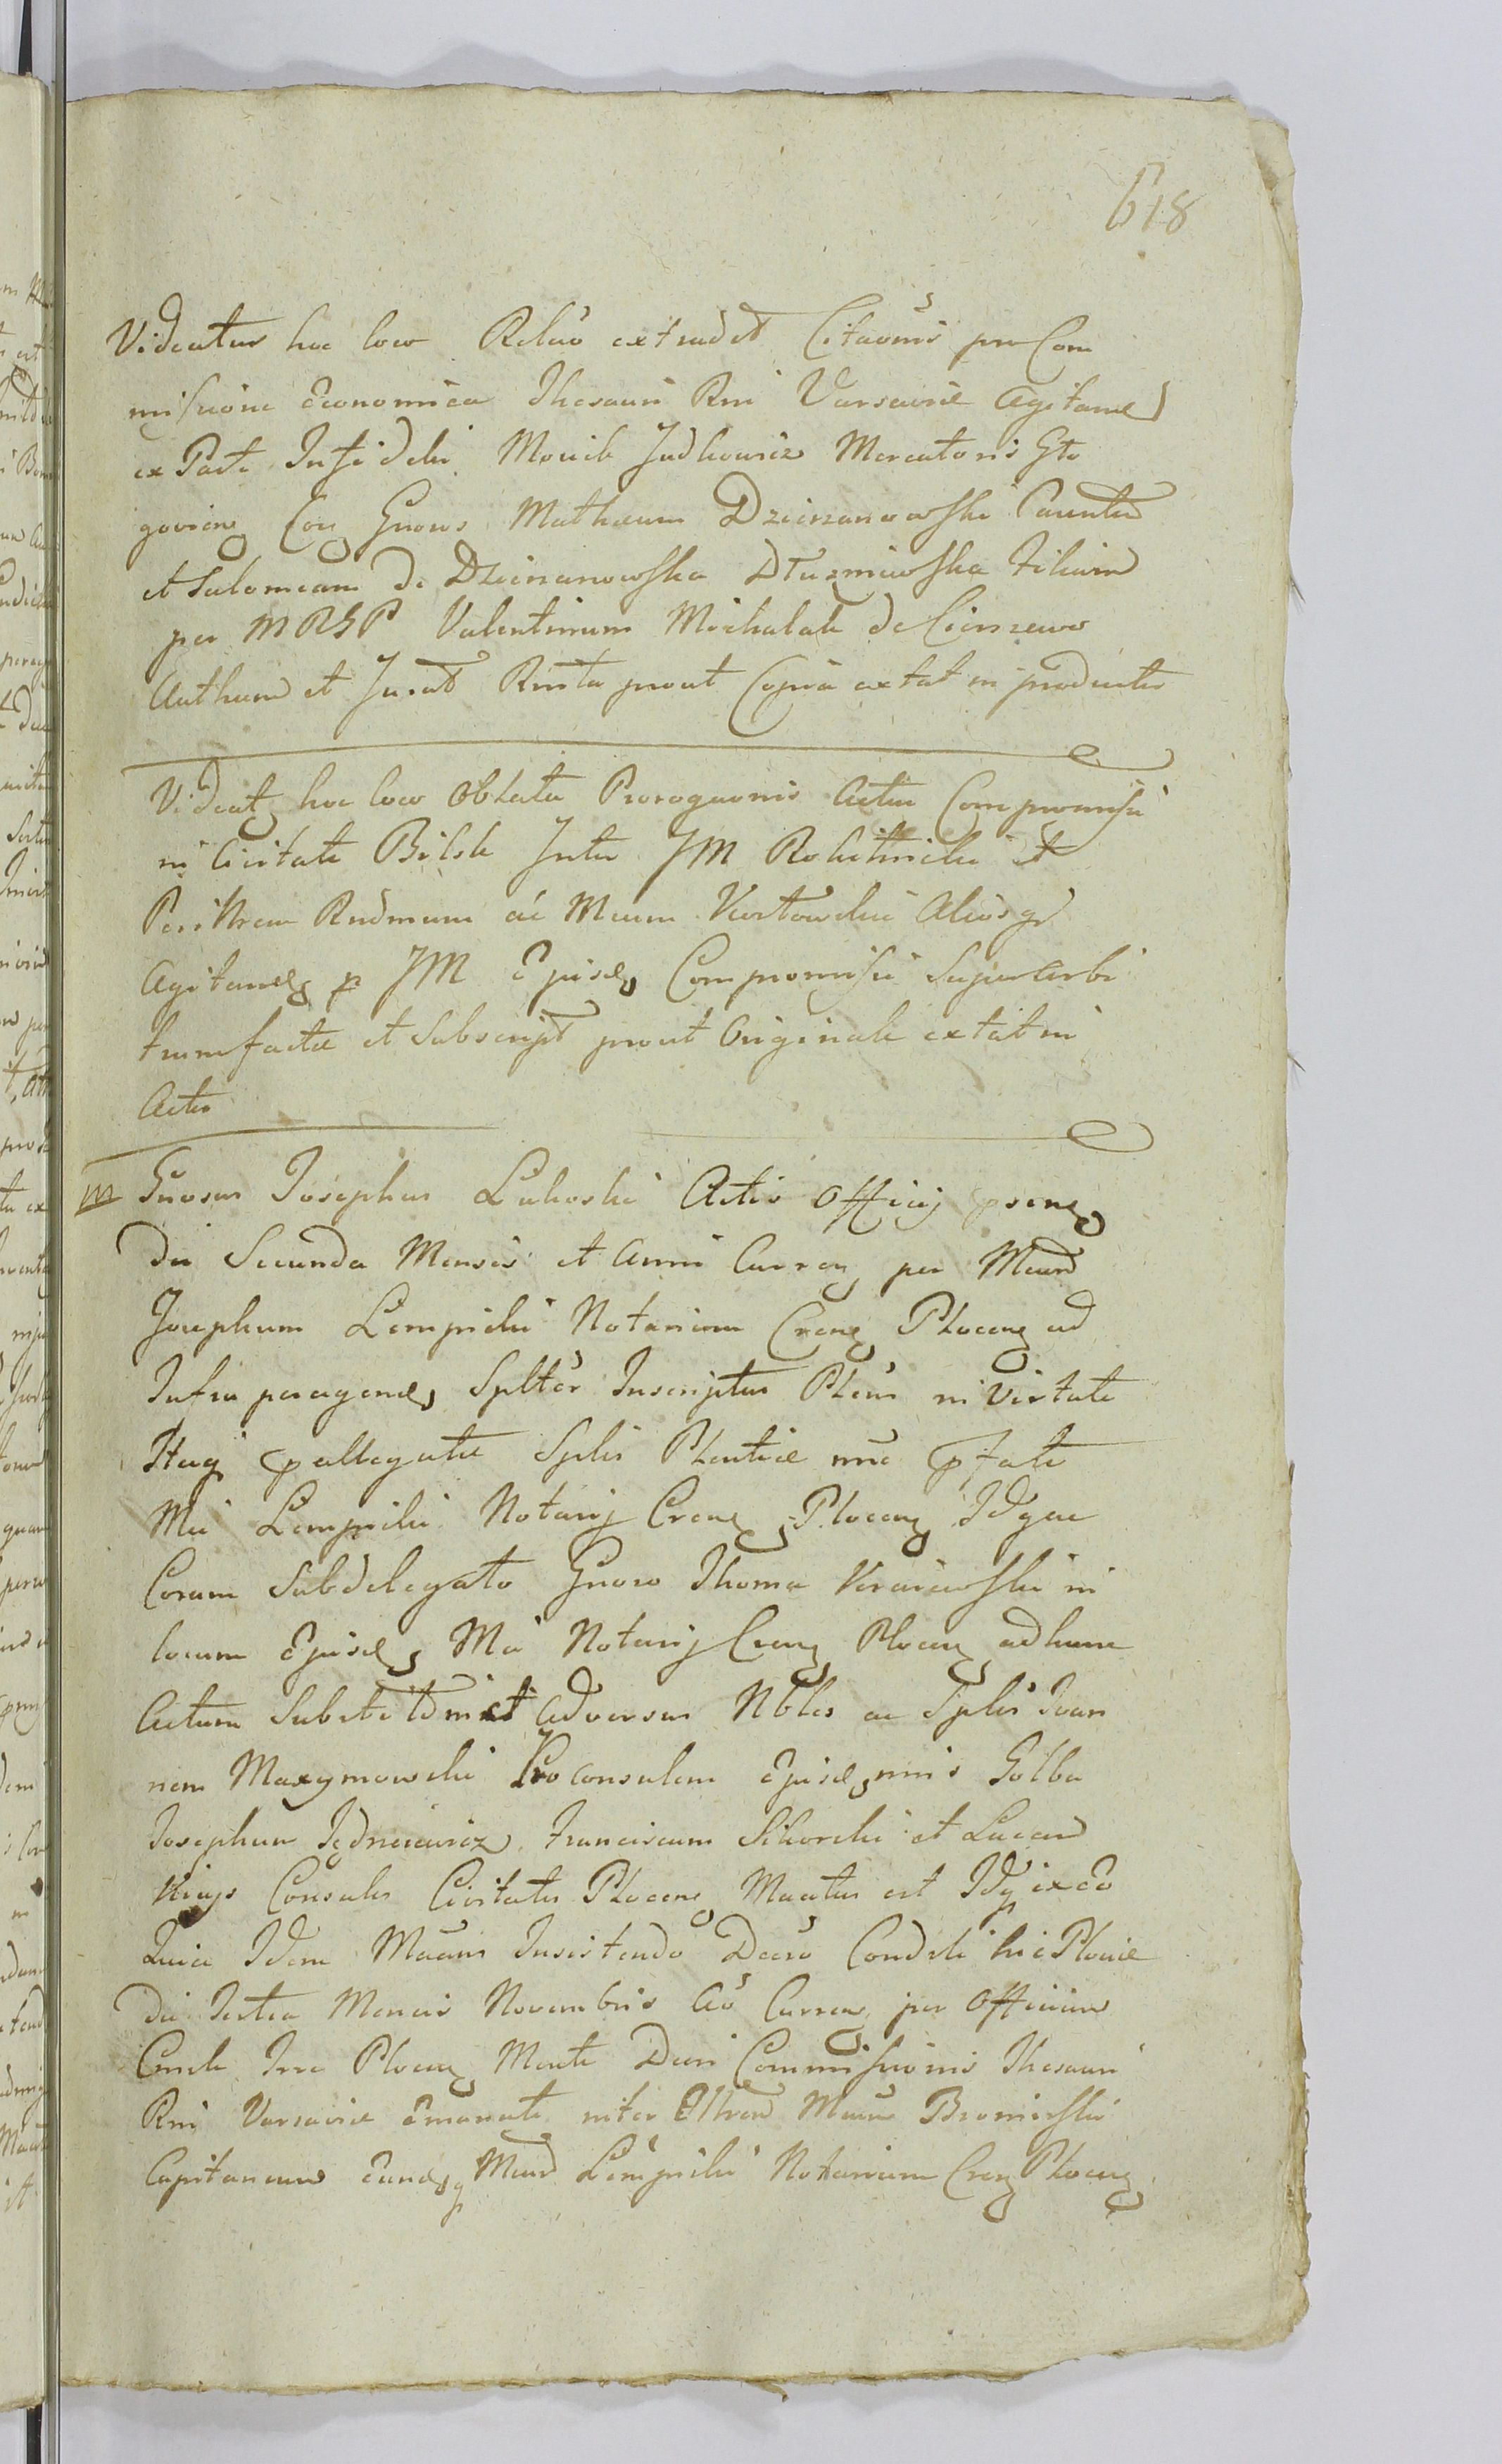 618
Videatur hoc loco Relaõ extradit Citaõnis pro Com
missione Economica Thesauri Rni Varsaviæ Agitand
ex Parte Infidelis Mosiek Judkowicz Mercatoris Gło
govien Con Gnosos Mathæum Dzierzanowski Parentem
et Salomeam de Dzierzanowskie Dłuzniewska Filiam
per MRGP Valentinum Michalak de Cierszewo
Authum et Jurat Rnta prout Copia extat in productis
Videat hoc loco Oblata Prorogaonis Actus Compromissi
in Civitate Bilsk Inter JM Rokitnicki et
Perillrem Rndmum ac Mcum Kurtowskie Aliosq
Agitand p JM Ejusd Compromissi Superarbi
trum factæ et Subscript prout Originale extat in
Actis
m Gnosus Josephus Łukoski Actis Officij psen
die Secunda Mensis et Anni Curren per Mcum
Josephum Lempicki Notarium Cren Plocen ad
Infra peragend Splter Inscriptus Plens in Virtute
Huj pallegatæ Splis Plentiæ nnc pfati
Mci Lempicki Notarij Cren Plocen Idque
Coram Subdelegato Gnoso Thoma Kraiewski in
locum Ejusd Mci Notarij Cren Plocen ad hunc
Actum Substit adversus Nbles ac Splis Joan
nem Maxymowski Proconsulem Ejusd Golba
Josephum Jędrzeiewicz Franciscum Sikorski et Lucam
Consules Civitatis Plocen Mactus est Idq ex eo
Quia Idem Macus Insistendo Decro Condli hic Plociæ
die Tertia Mensis Novembris Ao Curren per Officium
Cnsle Trre Plocen Mente Decri Commissionis Thesauri
Rni Varsaviæ Emanati inter Illrem Mcum Bromirski
Capitaneum Eund Mcum Lempicki Notarium Cren Plocen